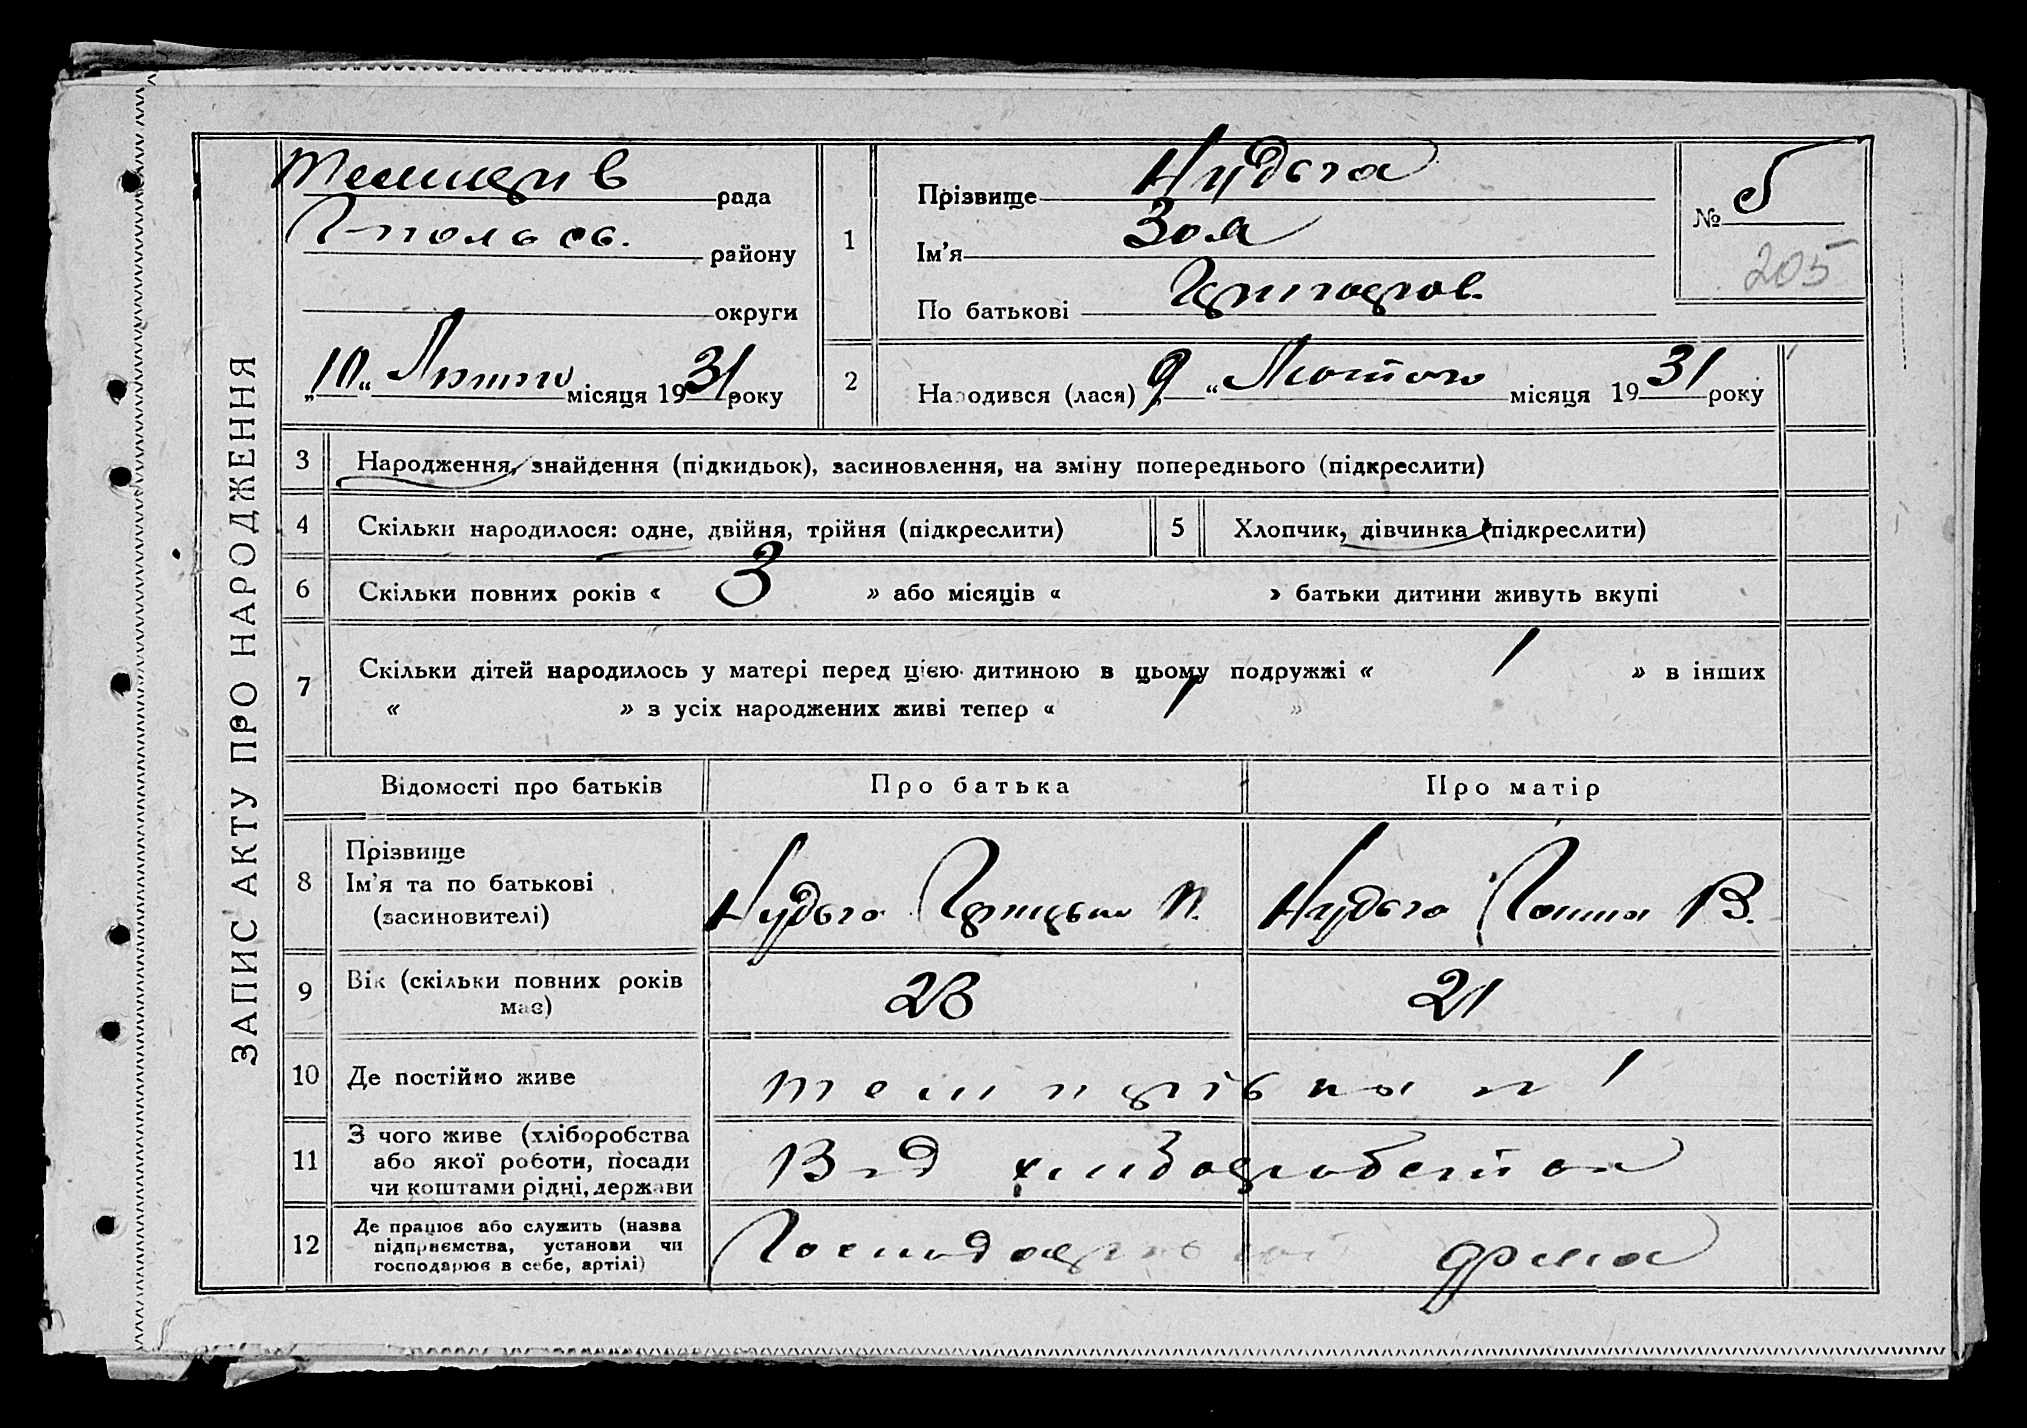 ЗАПИС АКТУ ПРО НАРОДЖЕННЯ
рада
району
округи
„10“ Лютого місяця 1931 року
1
Прізвище Нудьга
Ім'я Зоя
По батькові Григоров.
№ 5
205
2
Народився (лася) „9“ Лютого місяця 1931 року
3 Народження, знайдення (підкидьок), засиновлення, на зміну попереднього (підкреслити)
4 Скільки народилося: одне, двійня, трійня (підкреслити)
5 Хлопчик, дівчинка (підкреслити)
6 Скільки повних років « 3 » або місяців « » батьки дитини живуть вкупі
7 Скільки дітей народилось у матері перед цією дитиною в цьому подружжі « 1 » в інших
« » з усіх народжених живі тепер « 1 »
Відомості про батьків Про батька Про матір
8 Прізвище
Ім'я та по батькові
(засиновителі)
Нудьга Грицько П.
Нудьга Ганна В.
9 Вік (скільки повних років
має)
23
21
10 Де постійно живе
11 З чого живе (хліборобства
або якої роботи, посади
чи коштами рідні, держави
Від хліборобства
12 Де працює або служить (назва
підприємства, установи чи
господарює в себе, артілі)